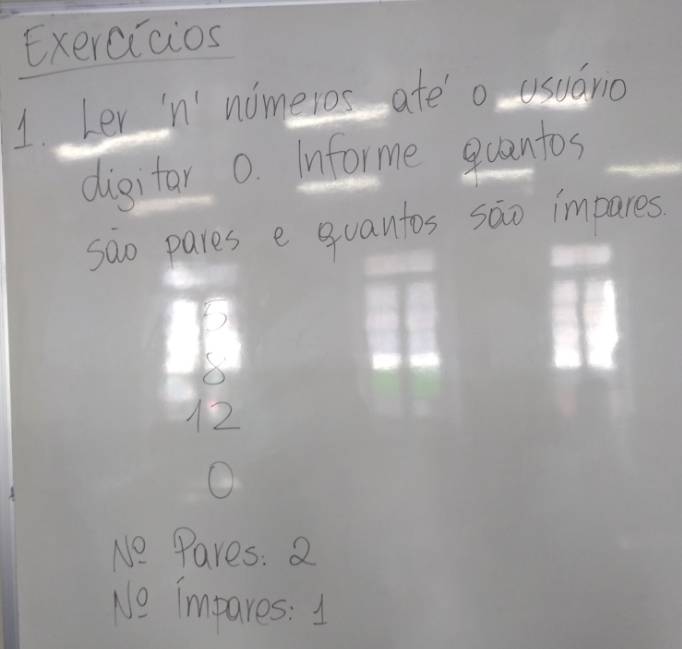 Exercícios
1. Ler 'n' números até o usuário
digitar 0. Informe quantos
são pares e quantos são ímpares.
5
8
12
0
Nº Pares: 2
Nº ímpares: 1